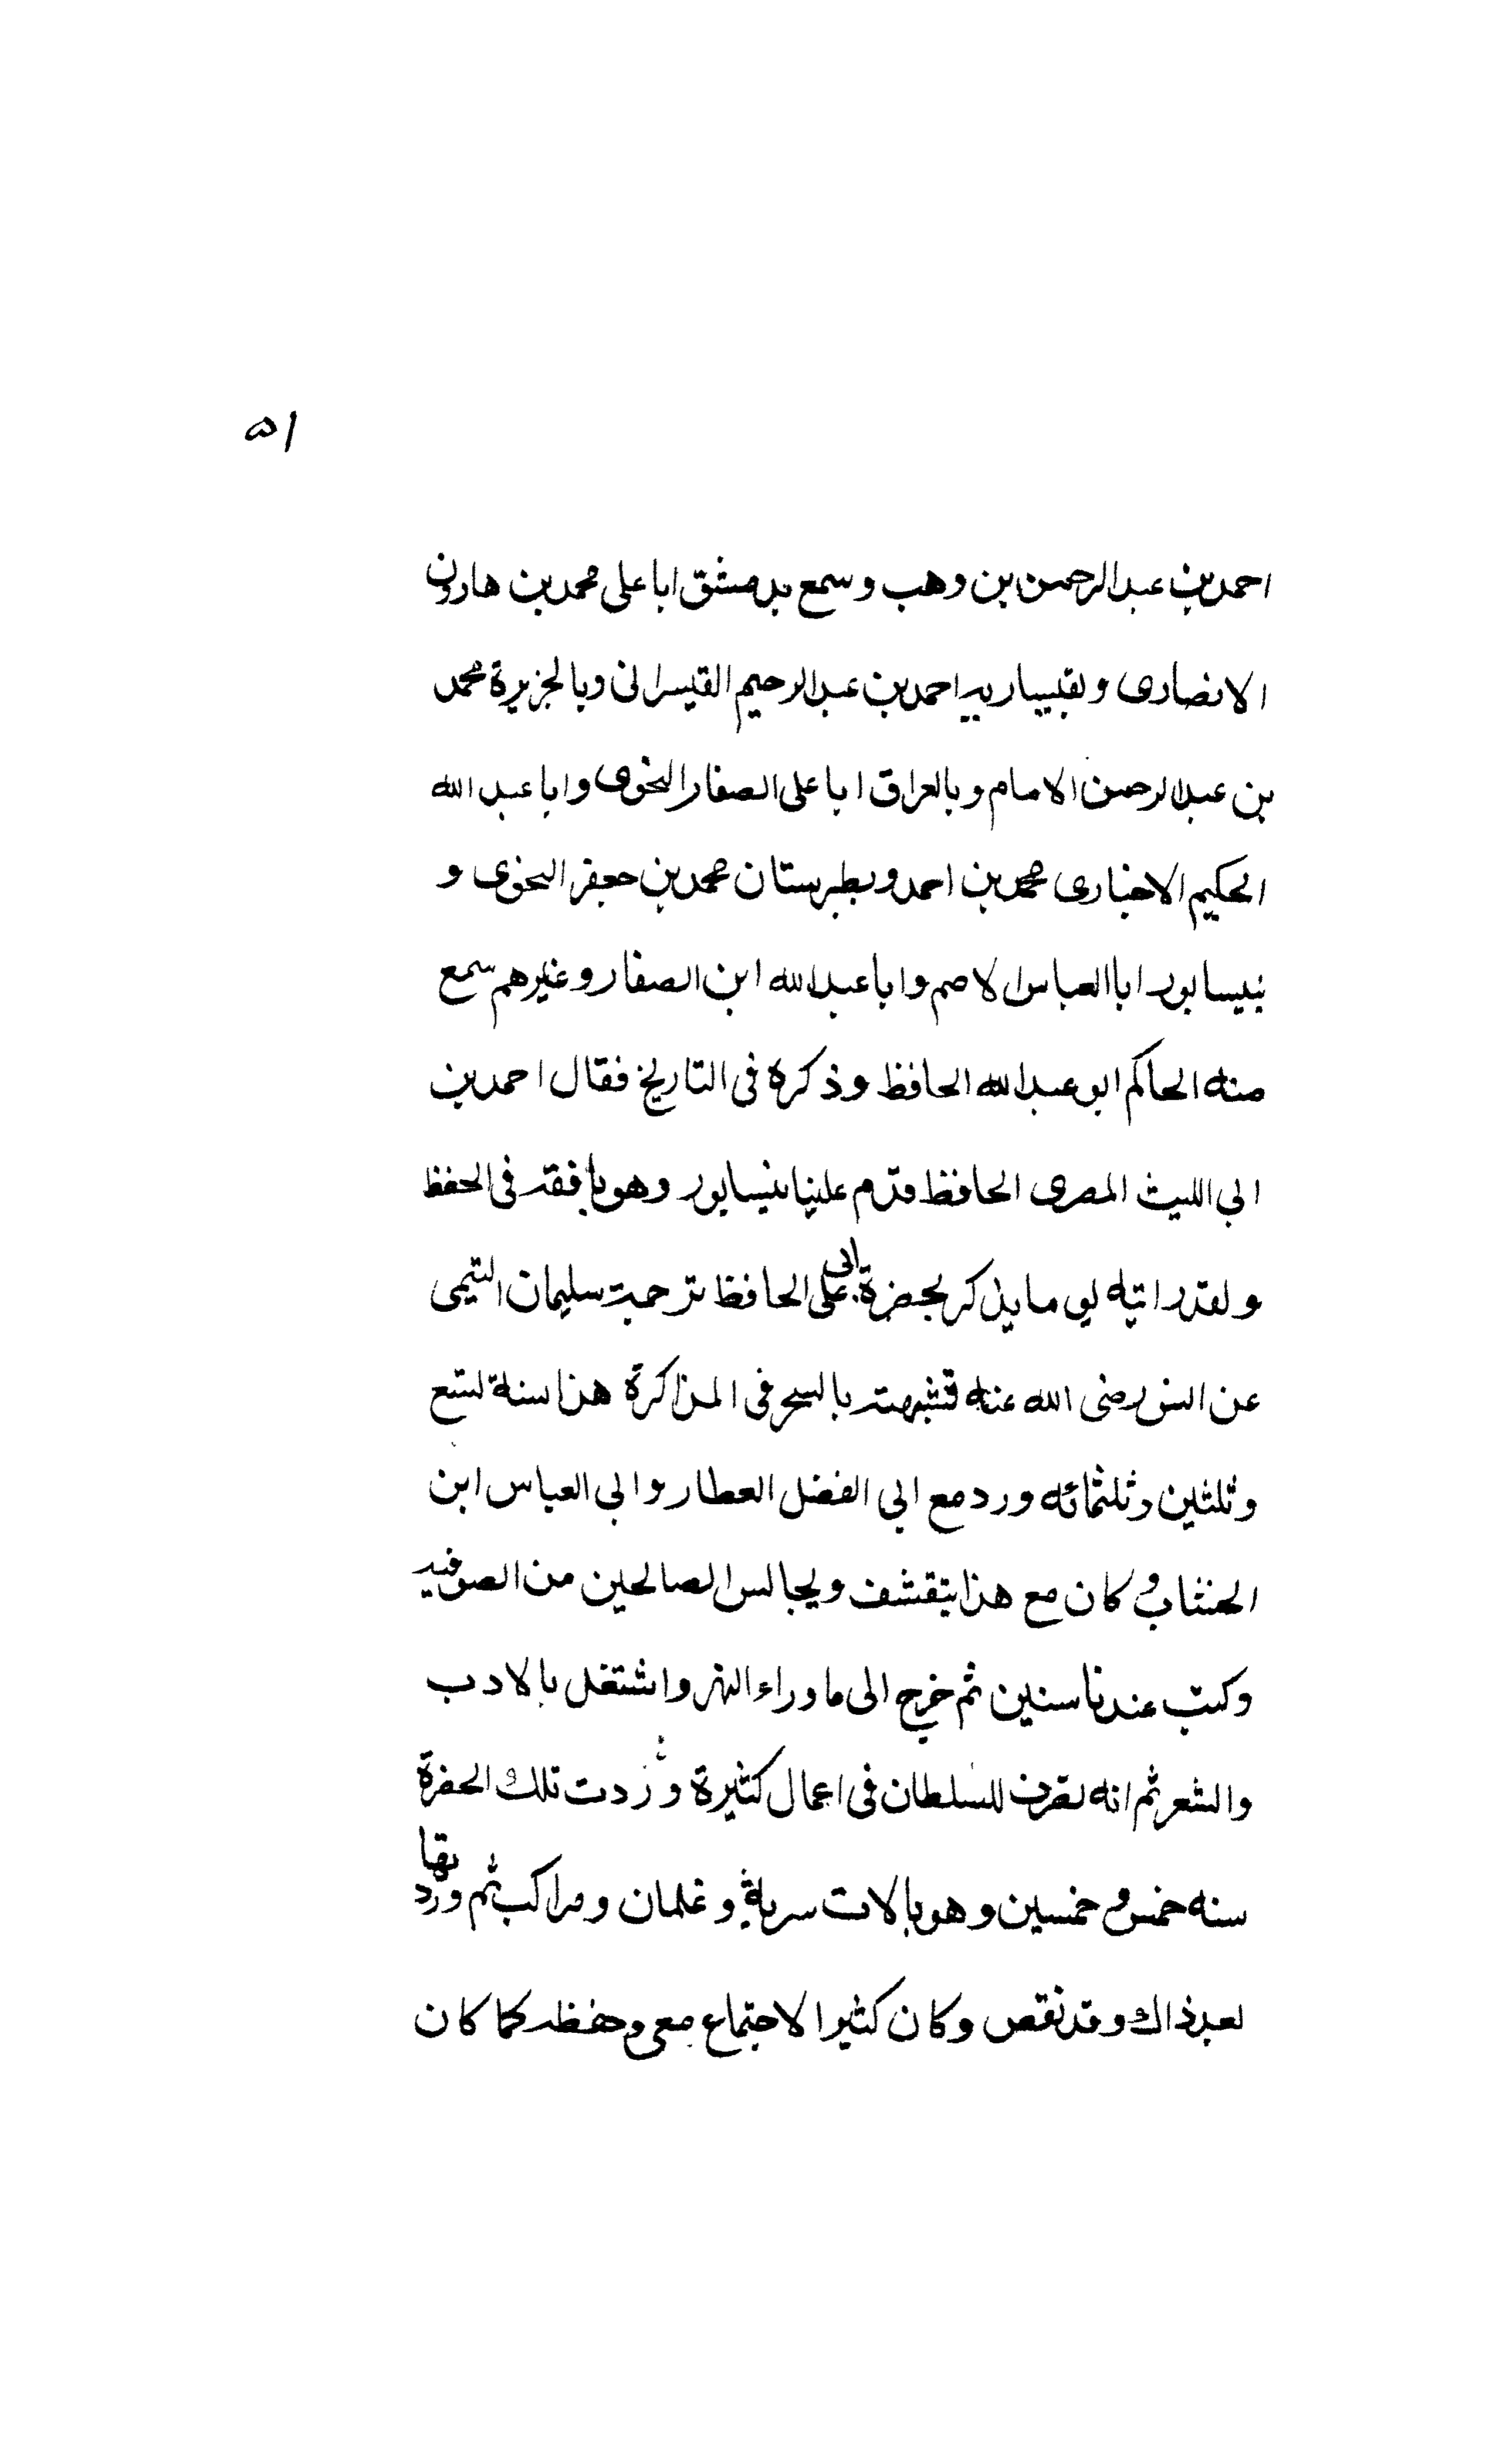 ٥١
احمد بن عبد الرحمن بن وهب وسمع بدمشق ابا على محمد بن هارون
الانصارى وبقيساريه احمد بن عبد الرحيم القيسرانى وبالجزيرة محمد
بن عبد الرحمن الامام وبالعراق ابا على الصفار النحوى وابا عبد الله
الحكيم الاخبارى محمد بن احمد وبطبرستان محمد بن جعفر النحوى و
نيسابور ابا العباس الاصم وابا عبد الله ابن الصفار وغيرهم سمع
منه الحاكم ابو عبد الله الحافظ وذكره فى التاريخ فقال احمد بن
ابى الليث المصرى الحافظ قدم علينا نيسابور وهو باقعة فى الحفظ
ولقد راتيه يوما يذكر بحضرة ابى على الحافظ ترجمة سليمان التيمى
عن انس رضى الله عنه فشبهته بالسحر فى المذاكرة هذا سنة تسع
وثلثين وثلثمائه ورد مع ابى الفضل العطار وابى العباس ابن
الخشاب وكان مع هذا يتقشف ويجالس الصالحين من الصوفيه
وكتب عندنا سنين ثم خرج الى ما وراء النهر واشتغل بالادب
والشعر ثم انه تصرف للسلطان فى اعمال كثيرة و وردت تلك الحضرة
سنه خمس وخمسين وهو بالات سرية وغلمان ومراكب ثم ورد بها
بعد ذالك وقد نقص وكان كثير الاجتماع معى وحفظه كما كان